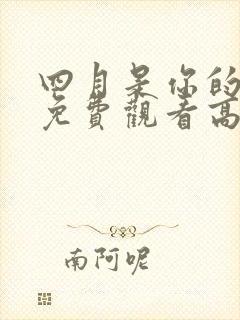 四月是你的
免費觀看高
南阿呢